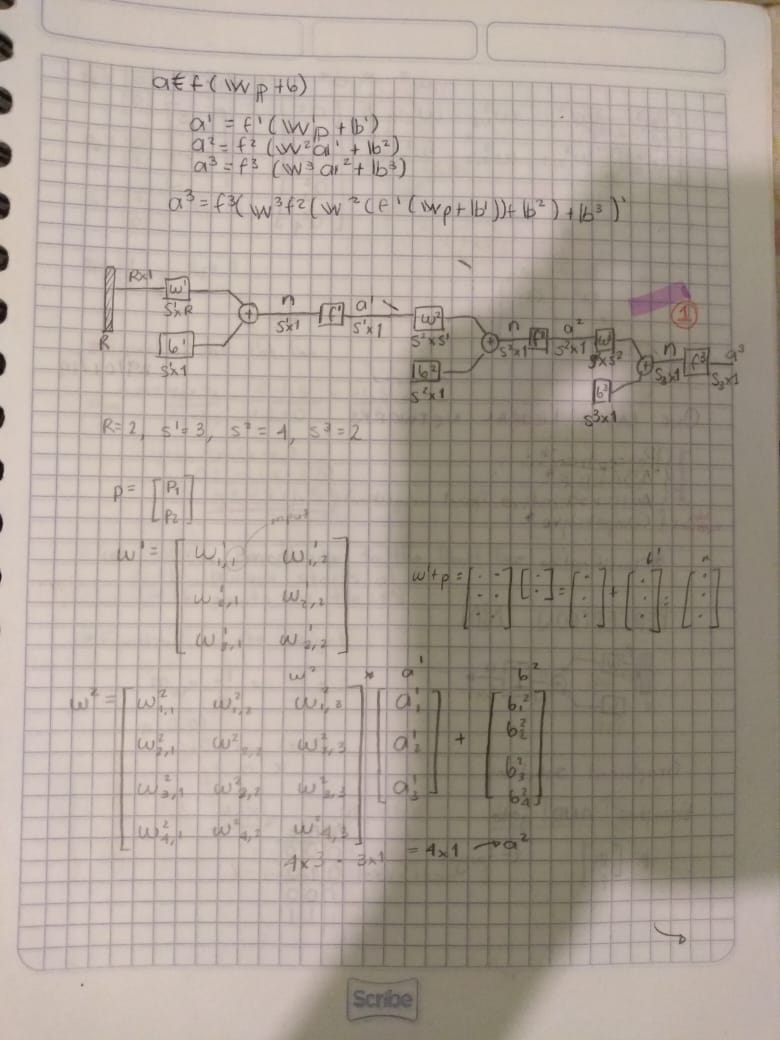 a = f(Wp+b)
a¹ = f¹(W¹p + b¹)
a² = f² (W²a¹ + b²)
a³ = f³ (W³a² + b³)
a³ = f³(W³f²(W²(f¹(Wp+b¹))+b²)+b³)
①
R×1 w¹ S¹×R b¹ S¹×1 R + n S¹×1 f¹ a¹ S¹×1 w² S²×S¹ b² S²×1 + n S²×1 a² S²×1 b³ S³×1 + n S₃×1 f³ a³ S₃×1
R=2, S¹=3, S²=4, S³=2
p = [P₁
P₂]
input
w¹ = [w¹₁,₁ w¹₁,₂
w¹₂,₁ w¹₂,₂
w¹₃,₁ w¹₃,₂]
w¹+p = [· · · · · ·] [· ·] = [· · ·] + b¹ [· · ·] = n [· · ·]
w² * a¹ b²
w² = [w²₁,₁ w²₁,₂ w²₁,₃] [a¹₁] [b²₁
w²₂,₁ w²₂,₂ w²₂,₃ a¹₂ + b²₂
w²₃,₁ w²₃,₂ w²₃,₃ a¹₃ b²₃
w²₄,₁ w²₄,₂ w²₄,₃ b²₄]
4×3 · 3×1 = 4×1 → a²
→
Scribe